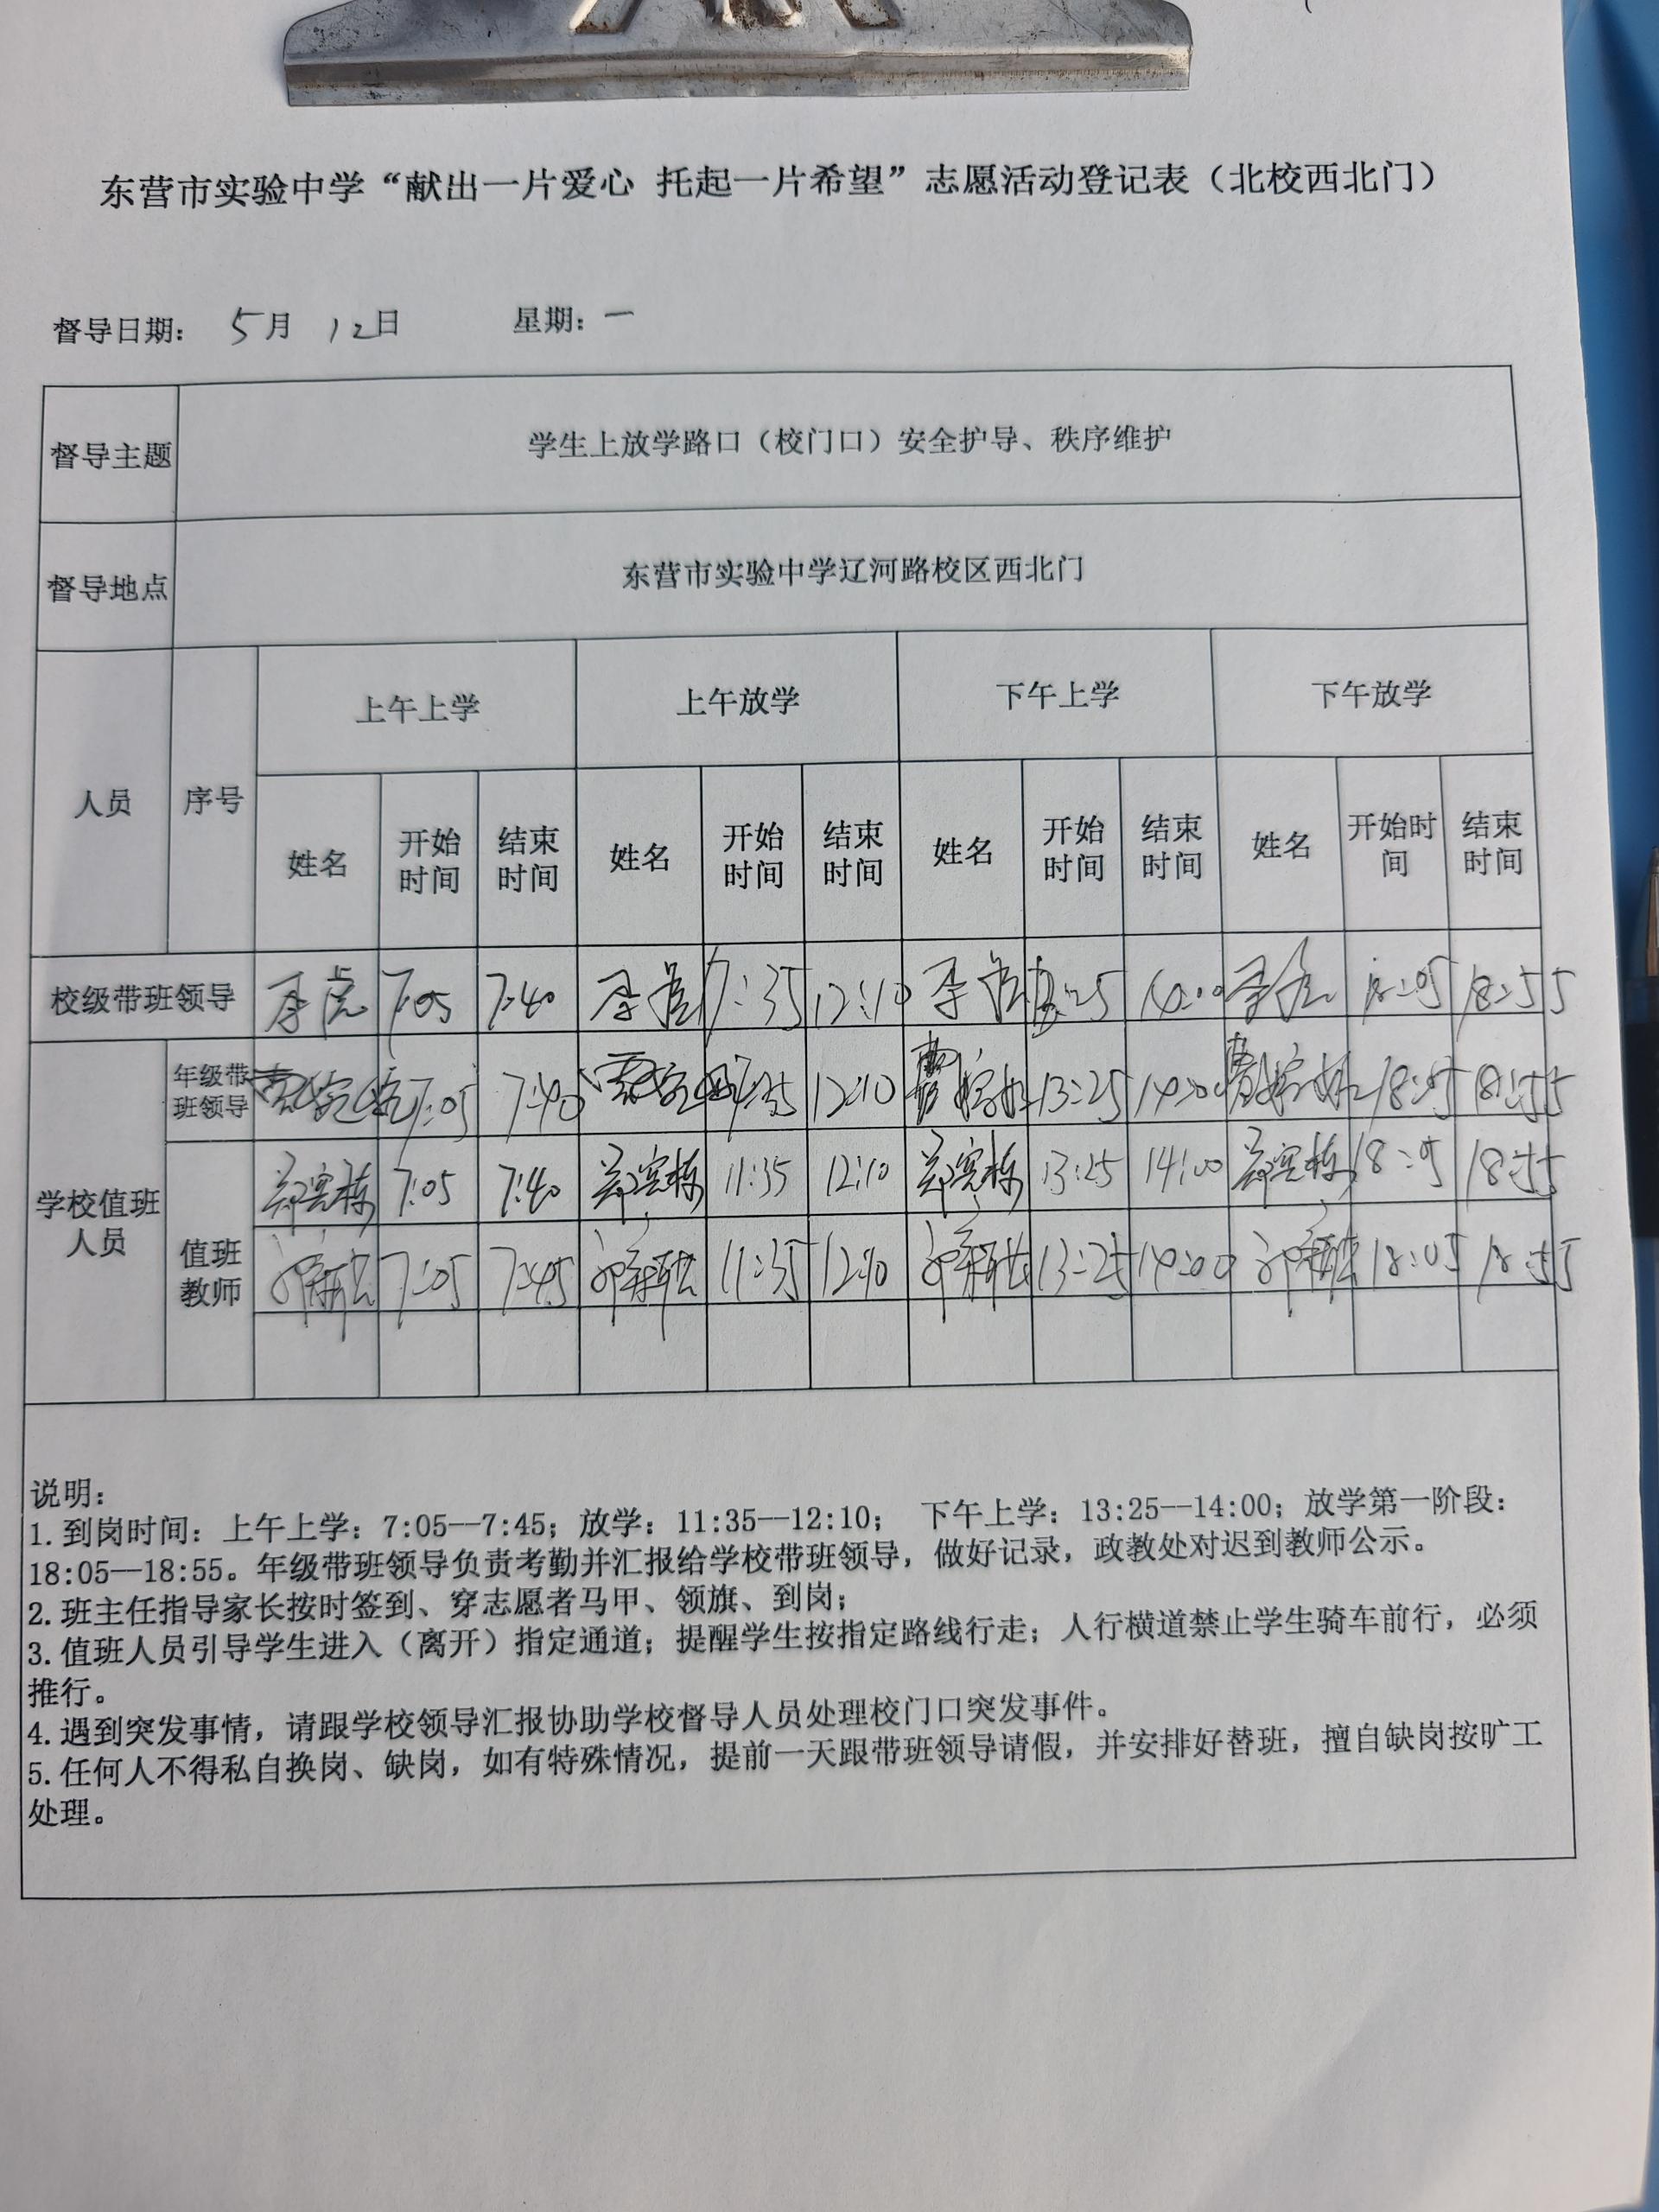 东营市实验中学“献出一片爱心 托起一片希望”志愿活动登记表（北校西北门）
督导日期： 5月 12日 星期：一
督导主题 学生上放学路口（校门口）安全护导、秩序维护
督导地点 东营市实验中学辽河路校区西北门
人员 序号 上午上学 上午放学 下午上学 下午放学
姓名 开始时间 结束时间 姓名 开始时间 结束时间 姓名 开始时间 结束时间 姓名 开始时间 结束时间
校级带班领导 李虎 7:05 7:40 李虎 12:10 李虎 14:00 李虎 18:05 18:55
学校值班人员
年级带班领导 7:05 7:40 12:10 13:25 14:00 18:05 18:55
值班教师
7:05 7:40 11:35 12:10 13:25 14:00 18:05 18:55
7:05 7:45 11:35 12:10 13:25 14:00 18:05 18:55
说明：
1.到岗时间：上午上学：7:05—7:45；放学：11:35—12:10； 下午上学：13:25—14:00；放学第一阶段：
18:05—18:55。年级带班领导负责考勤并汇报给学校带班领导，做好记录，政教处对迟到教师公示。
2.班主任指导家长按时签到、穿志愿者马甲、领旗、到岗；
3.值班人员引导学生进入（离开）指定通道；提醒学生按指定路线行走；人行横道禁止学生骑车前行，必须
推行。
4.遇到突发事情，请跟学校领导汇报协助学校督导人员处理校门口突发事件。
5.任何人不得私自换岗、缺岗，如有特殊情况，提前一天跟带班领导请假，并安排好替班，擅自缺岗按旷工
处理。